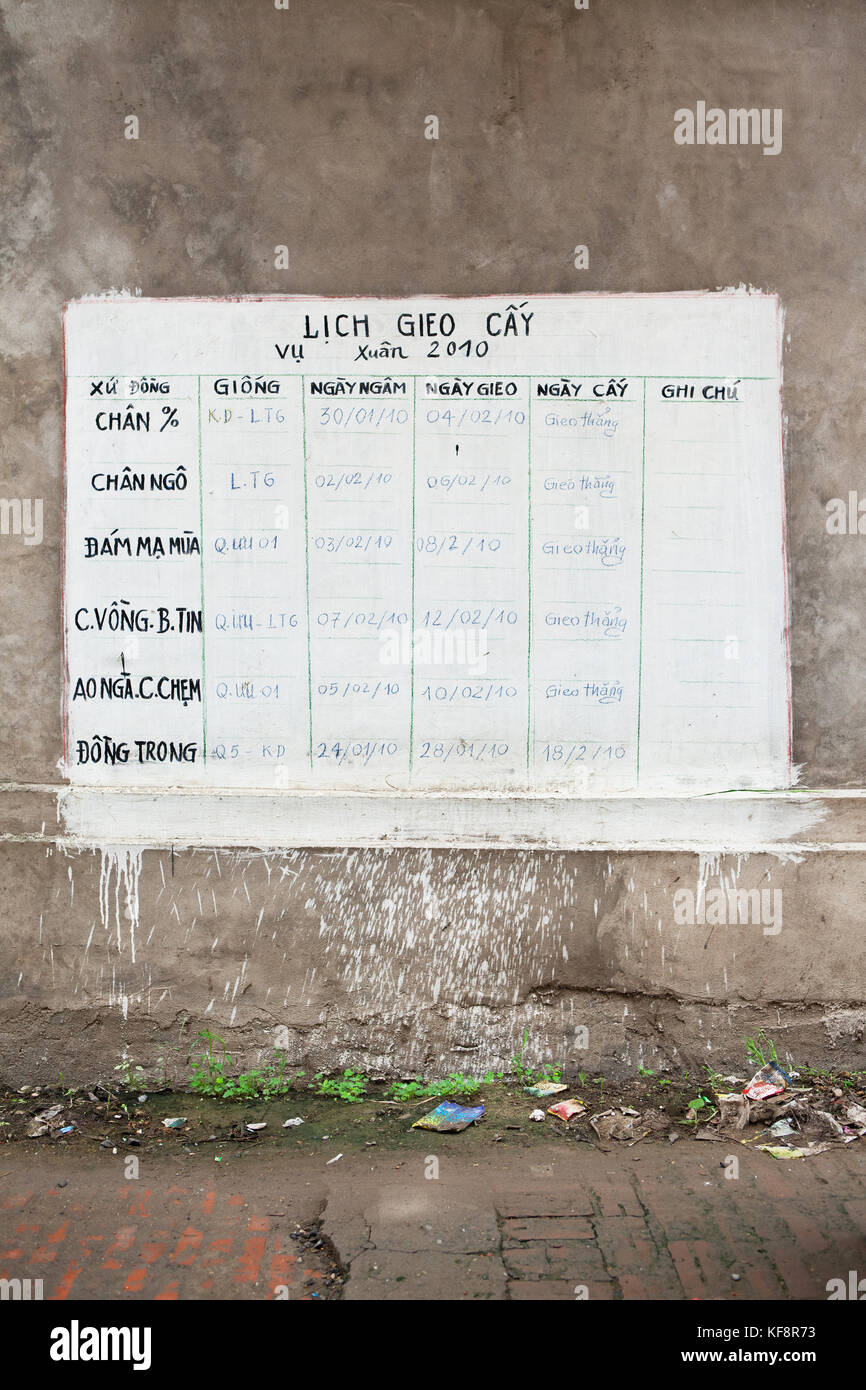 LỊCH GIEO CẤY
VỤ Xuân 2010
XỨ ĐỒNG GIỐNG NGÀY NGÂM NGÀY GIEO NGÀY CẤY GHI CHÚ
CHÂN % KD - LTG 30/01/10 04/02/10 Gieo thẳng
CHÂN NGÔ L.TG 02/02/10 06/02/10 Gieo thẳng
ĐÁM MẠ MÙA Q.ƯU 01 03/02/10 08/2/10 Gieo thẳng
C.VÔNG.B.TIN Q.ƯU-LTG 07/02/10 12/02/10 Gieo thẳng
AO NGÃ.C.CHẸM Q.ƯU 01 05/02/10 10/02/10 Gieo thẳng
ĐỒNG TRONG Q5 - KD 24/01/10 28/01/10 18/2/10
a alamy stock photo
alamy
Image ID: KF8R73
www.alamy.com